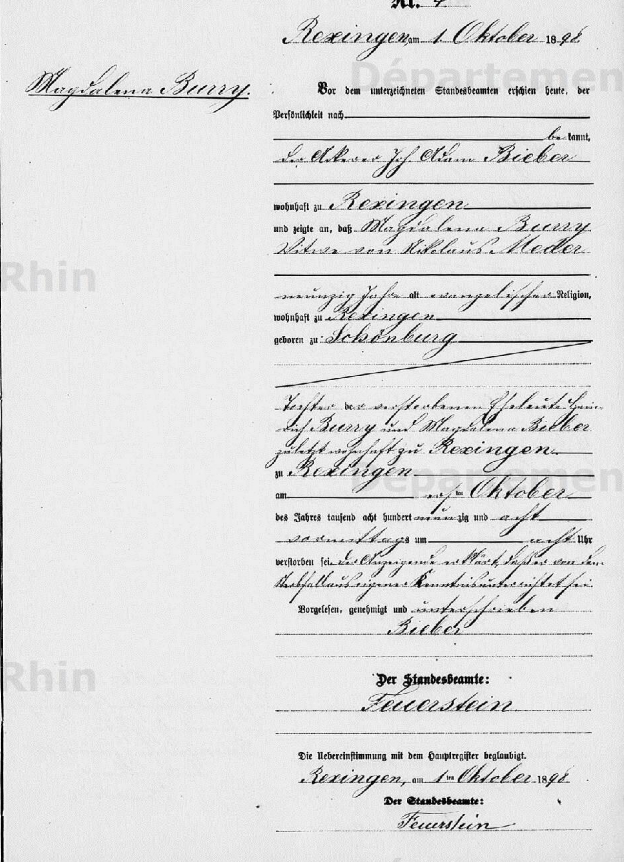 Nr. 4
Rexingen, am 1 Oktober 1898
Magdalena Burry.
Vor dem unterzeichneten Standesbeamten erschien heute, der
Persönlichkeit nach
be kannt,
der Ackerer Joh. Adam Bieber
wohnhaft zu Rexingen
und zeigte an, daß Magdalena Burry
Witwe von Nikolaus Meder
neunzig Jahre alt evangelischer Religion,
wohnhaft zu Rexingen
geboren zu: Schönburg
Tochter der verstorbenen Eheleute Hein-
rich Burry und Magdalena Bieber
zuletzt wohnhaft zu Rexingen
zu Rexingen
am ersten Oktober
des Jahres tausend acht hundert neunzig und acht
vormittags um acht Uhr
verstorben sei. Der Anzeigende erklärt, daß er von dem
Sterbfall aus eigener Kenntnis unterrichtet sei.
Vorgelesen, genehmigt und unterschrieben
Bieber
Der Standesbeamte:
Feuerstein
Die Uebereinstimmung mit dem Hauptregister beglaubigt.
Rexingen, am 1ten Oktober 1898
Der Standesbeamte:
Feuerstein
Département
Rhin
Département
Rhin